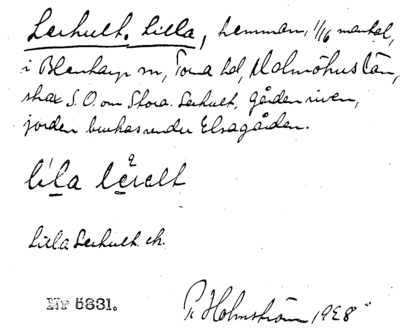 Lerhult, Lilla, hemman, 1/16 mantal,
i Blentarp sn, Torna hd, Malmöhus län,
strax S.O. om Stora Lerhult, gården riven,
jorden brukas under Elsagården.
lila lerelt
Lilla Lerhult ek.
Nr 5831.
P. Holmström 1928